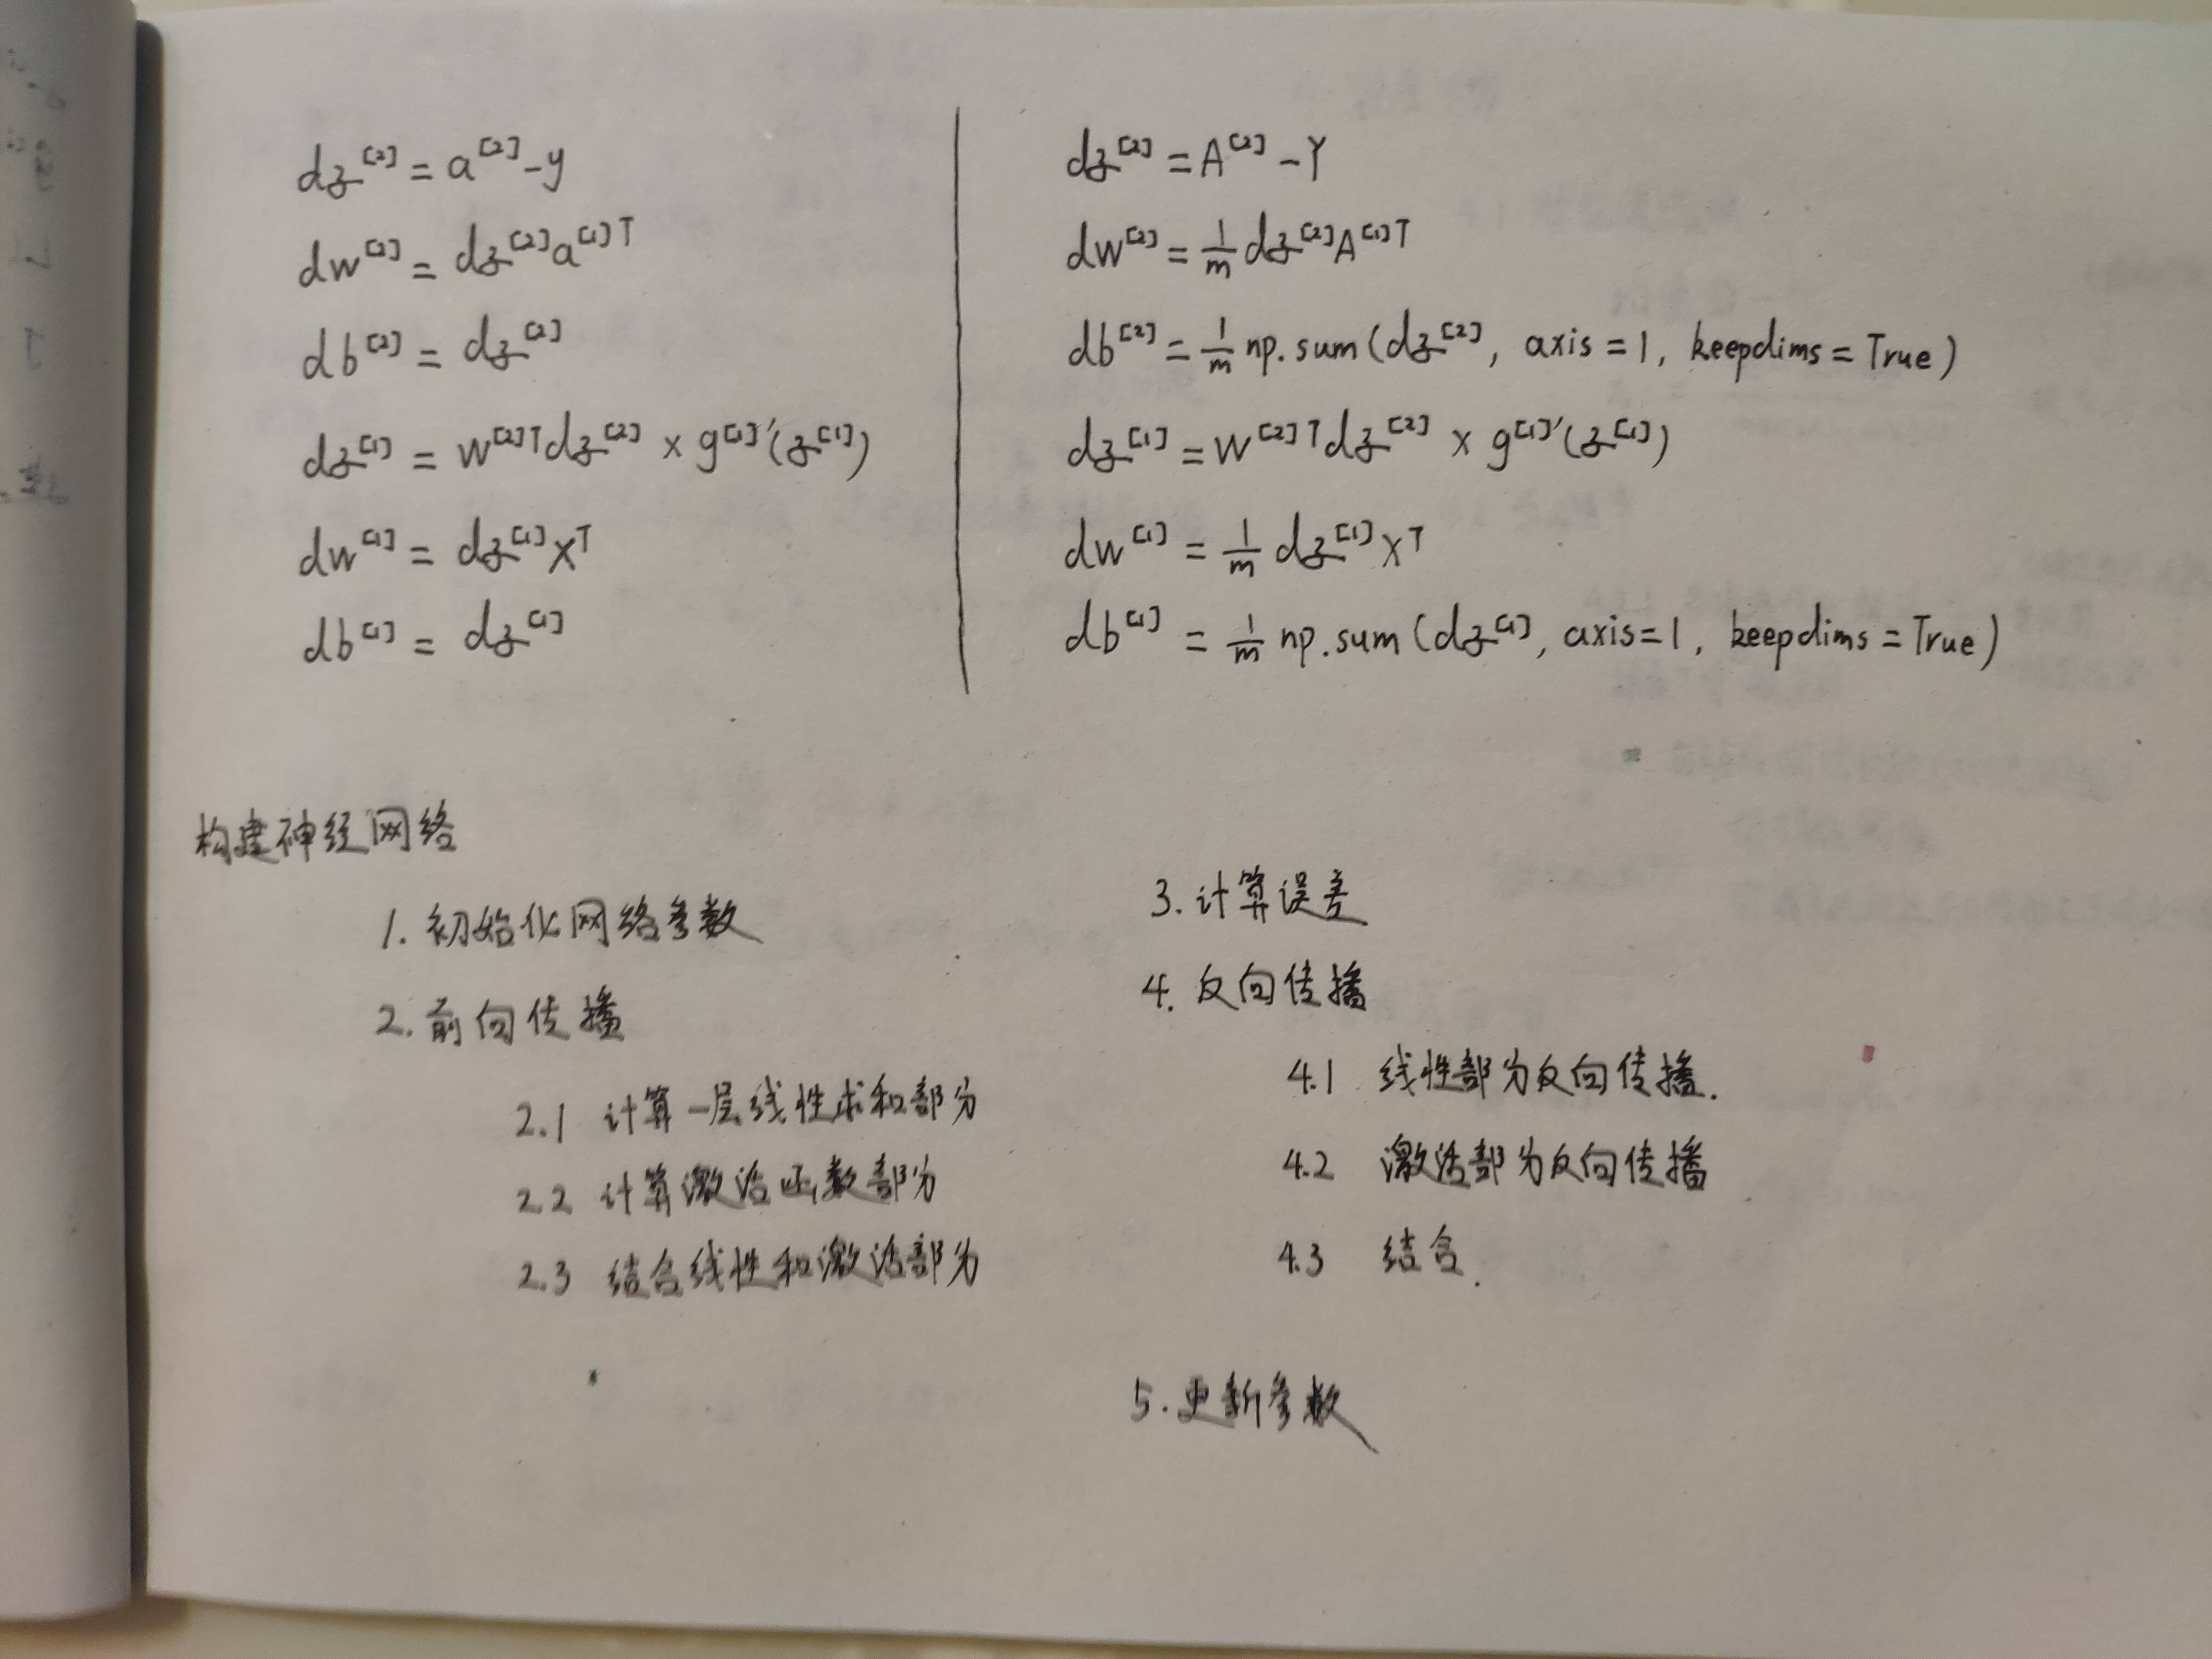 dz^[2] = a^[2] - y
dw^[2] = dz^[2] a^[1]T
db^[2] = dz^[2]
dz^[1] = w^[2]T dz^[2] × g^[1]'(z^[1])
dw^[1] = dz^[1] x^T
db^[1] = dz^[1]
dz^[2] = A^[2] - Y
dw^[2] = 1/m dz^[2] A^[1]T
db^[2] = 1/m np.sum(dz^[2], axis=1, keepdims=True)
dz^[1] = w^[2]T dz^[2] × g^[1]'(z^[1])
dw^[1] = 1/m dz^[1] x^T
db^[1] = 1/m np.sum(dz^[1], axis=1, keepdims=True)
构建神经网络
1. 初始化网络参数
2. 前向传播
2.1 计算一层线性求和部分
2.2 计算激活函数部分
2.3 结合线性和激活部分
3. 计算误差
4. 反向传播
4.1 线性部分反向传播.
4.2 激活部分反向传播
4.3 结合.
5. 更新参数